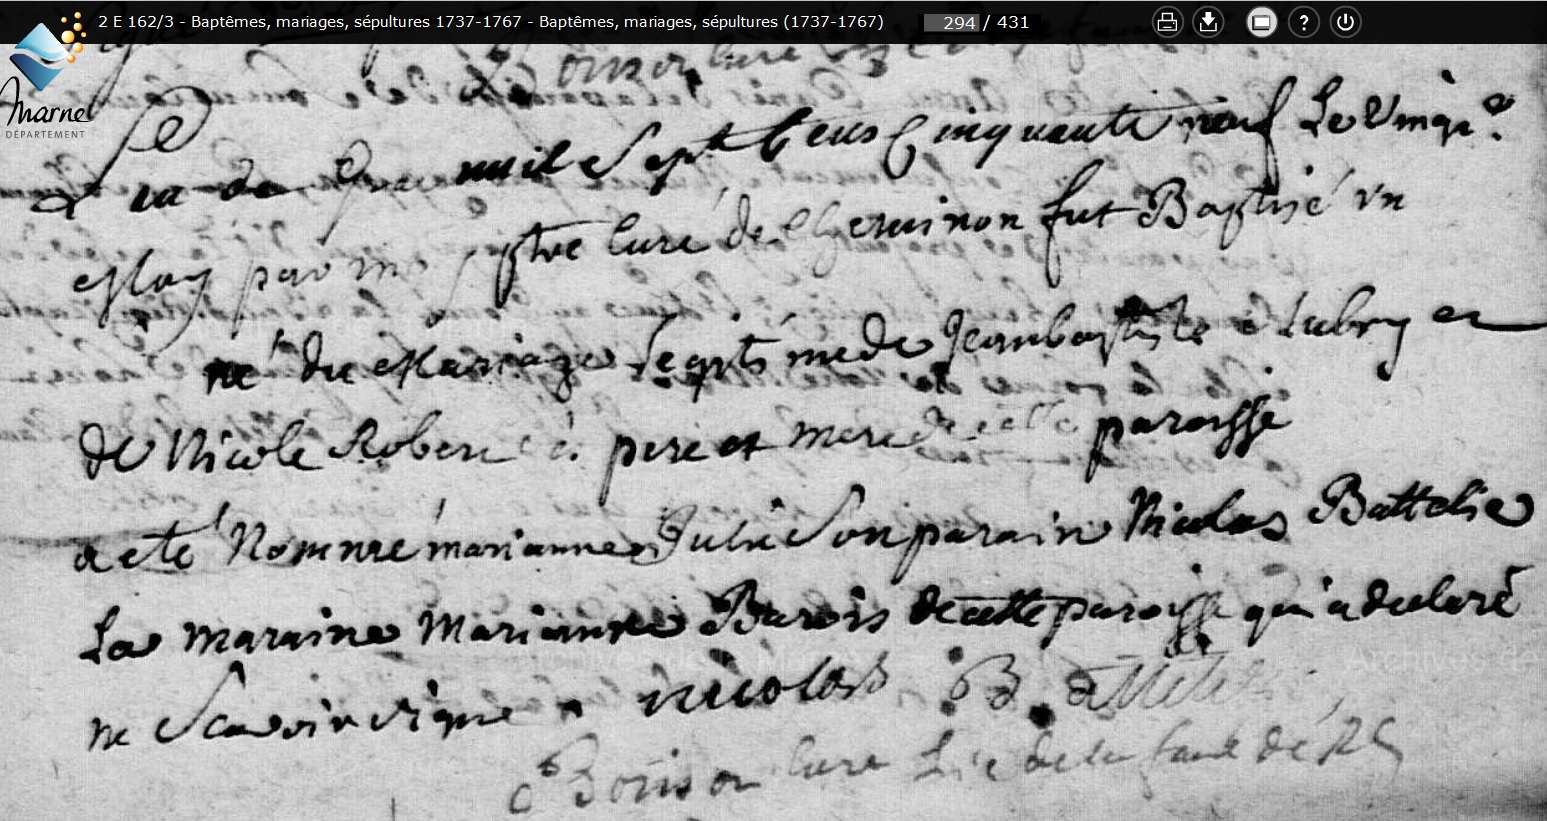 2 E 162/3 - Baptêmes, mariages, sépultures 1737-1767 - Baptêmes, mariages, sépultures (1737-1767) 294 / 431
Marne
DÉPARTEMENT
L'an de mil Sept Cens Cinquante neuf Le Vingt
May par moy ptre Curé de Cheminon fut Baptisé vn
né du Mariage legitime de Jean baptiste Aubry et
de Nicole Robert pere et mere de cette paroisse
a eté Nommé marianne Julie Son parain Nicolas Battelie
La maraine Marianne Barois de cette paroisse qui a declaré
ne Scavoir signe nicolas B
Boison Curé de la de R